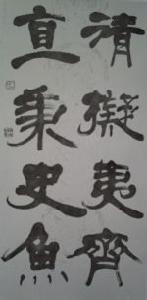 清擬夷齊
直秉史魚